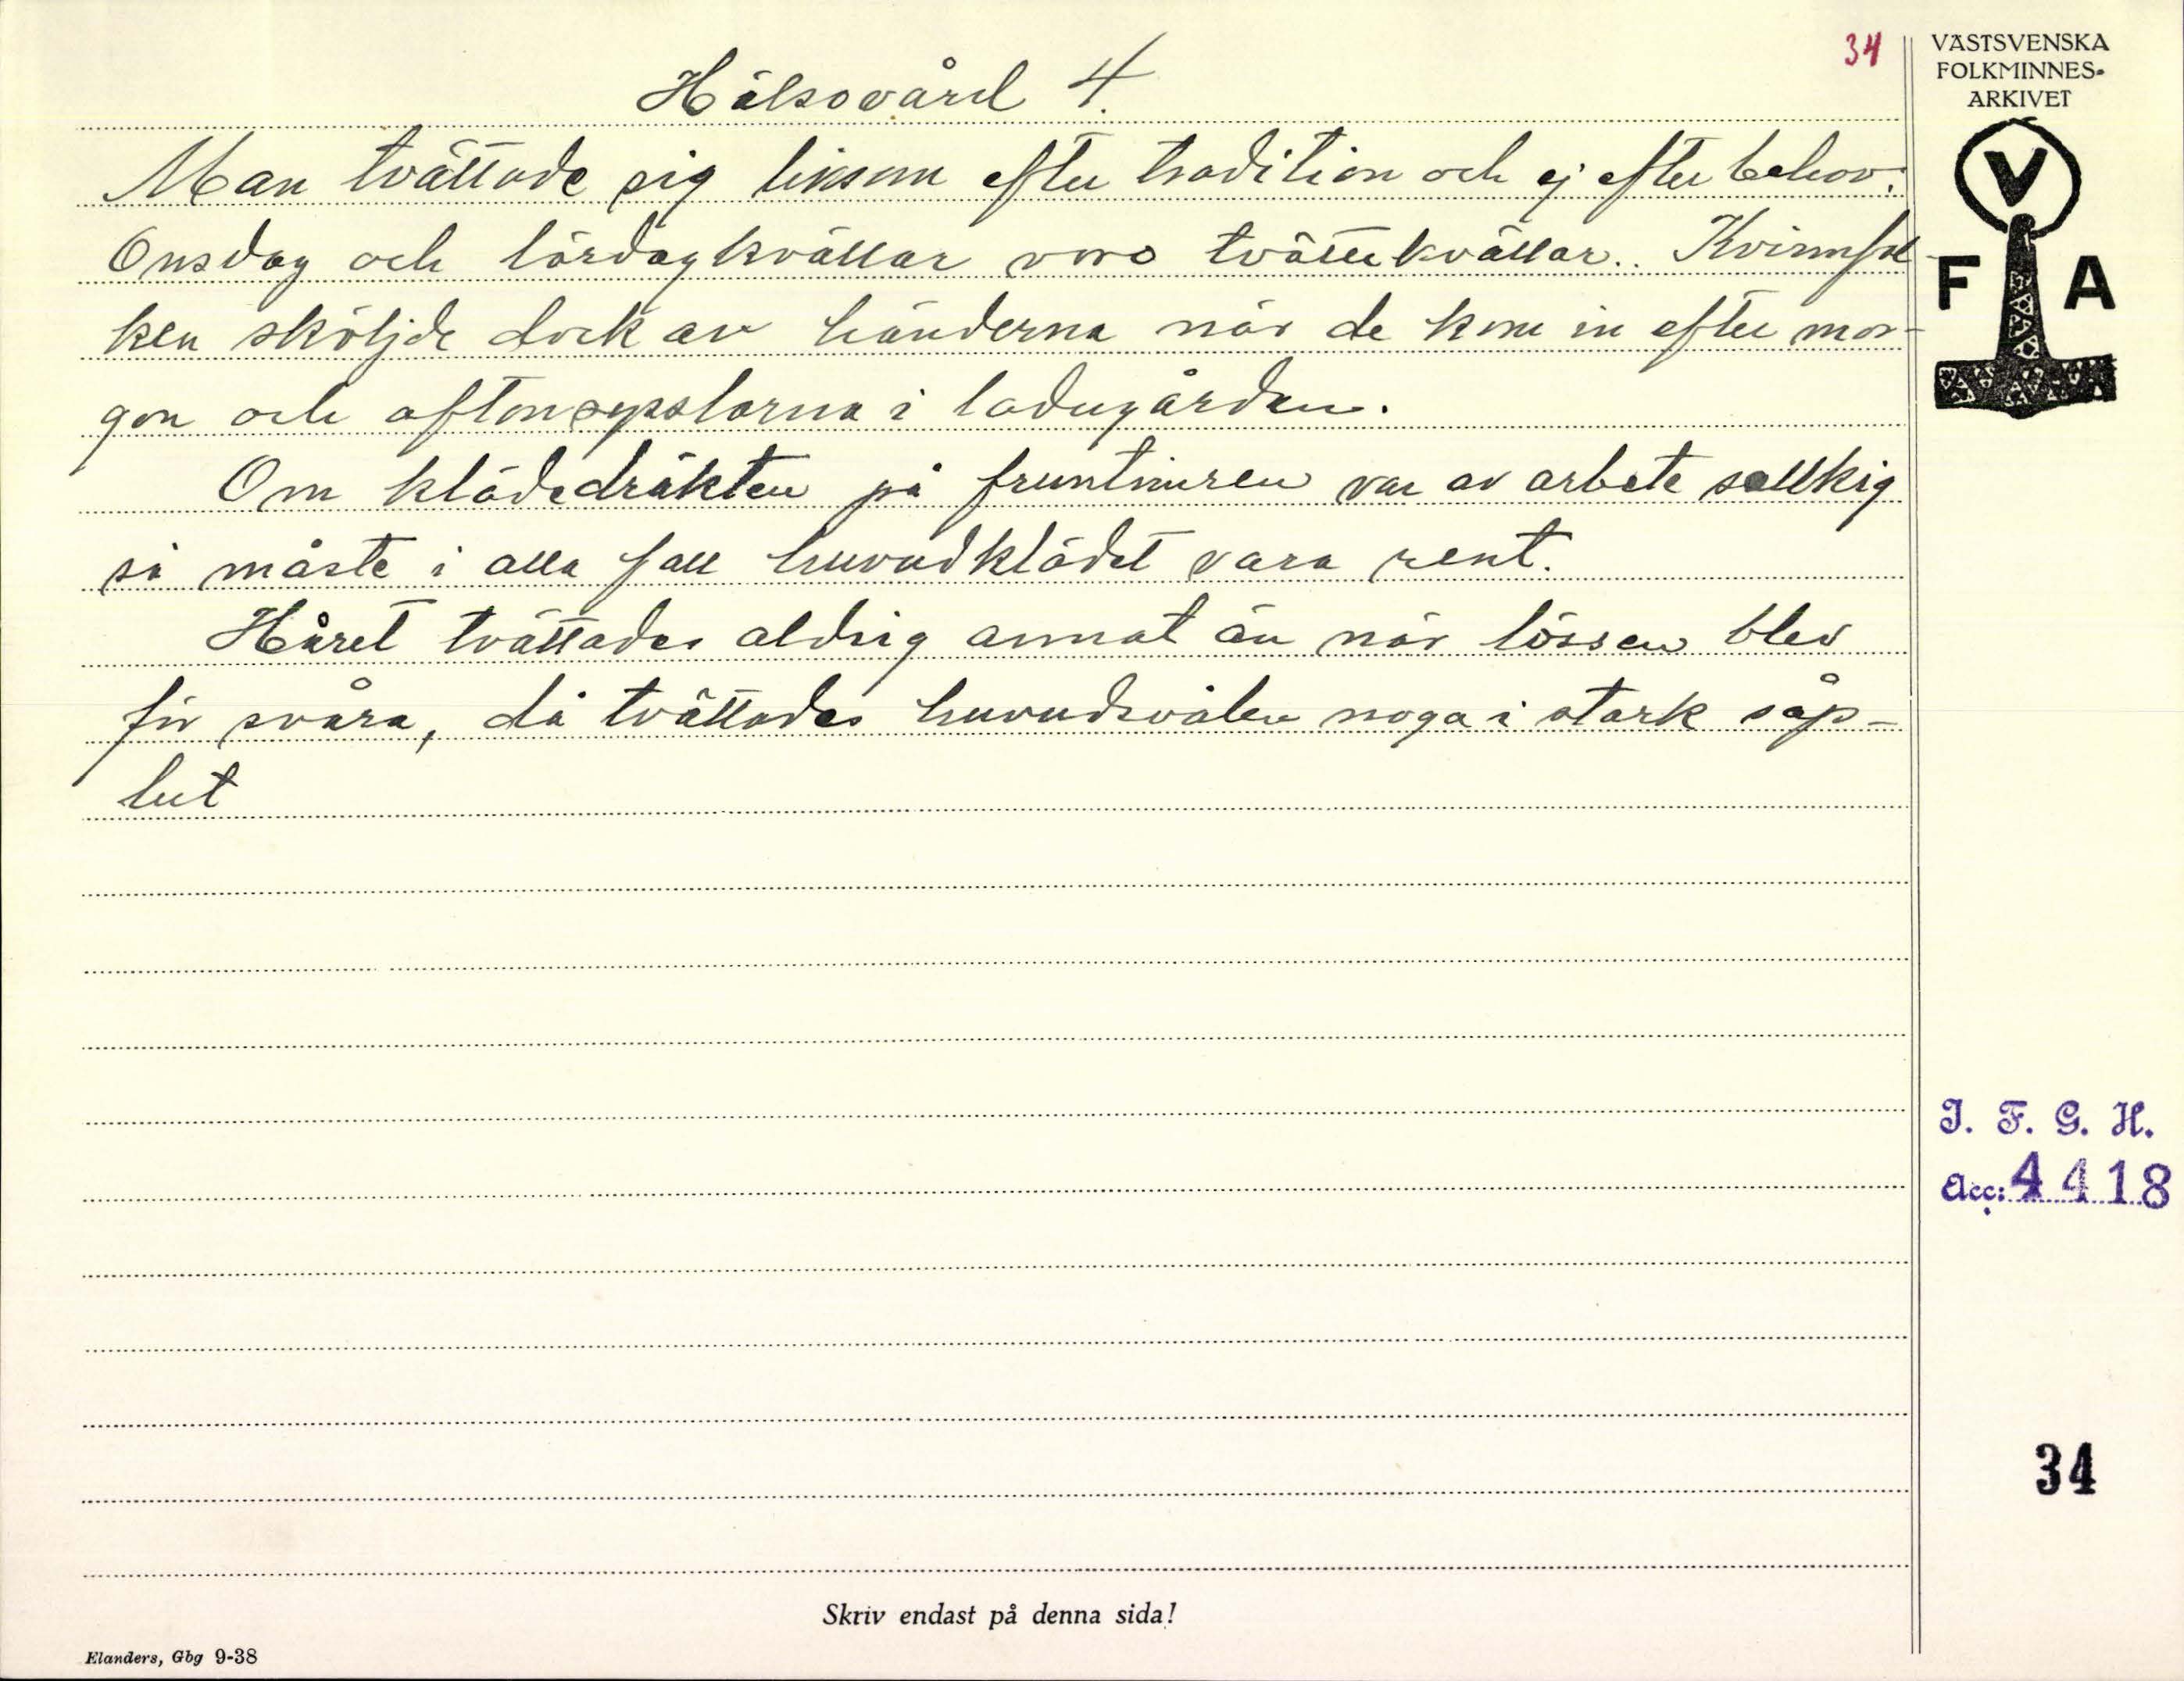 34
VÄSTSVENSKA
FOLKMINNES-
ARKIVET
V
F A
Hälsovård 4.
Man tvättade sig liksom efter tradition och ej efter behov.
Onsdag och lördagkvällar voro tvättekvällar. Kvinnfol
ken sköljde dock av händerna när de kom in efter mor-
gon och aftonsysslorna i ladugården.
Om klädedräkten på fruntimren var av arbete sollkig
så måste i alla fall huvudklädet vara rent.
Håret tvättades aldrig annat än när lössen blev
för svåra, då tvättades huvudsvålen noga i stark såp-
lut
I. F. G. H.
Acc: 4418
34
Skriv endast på denna sida!
Elanders, Gbg 9-38